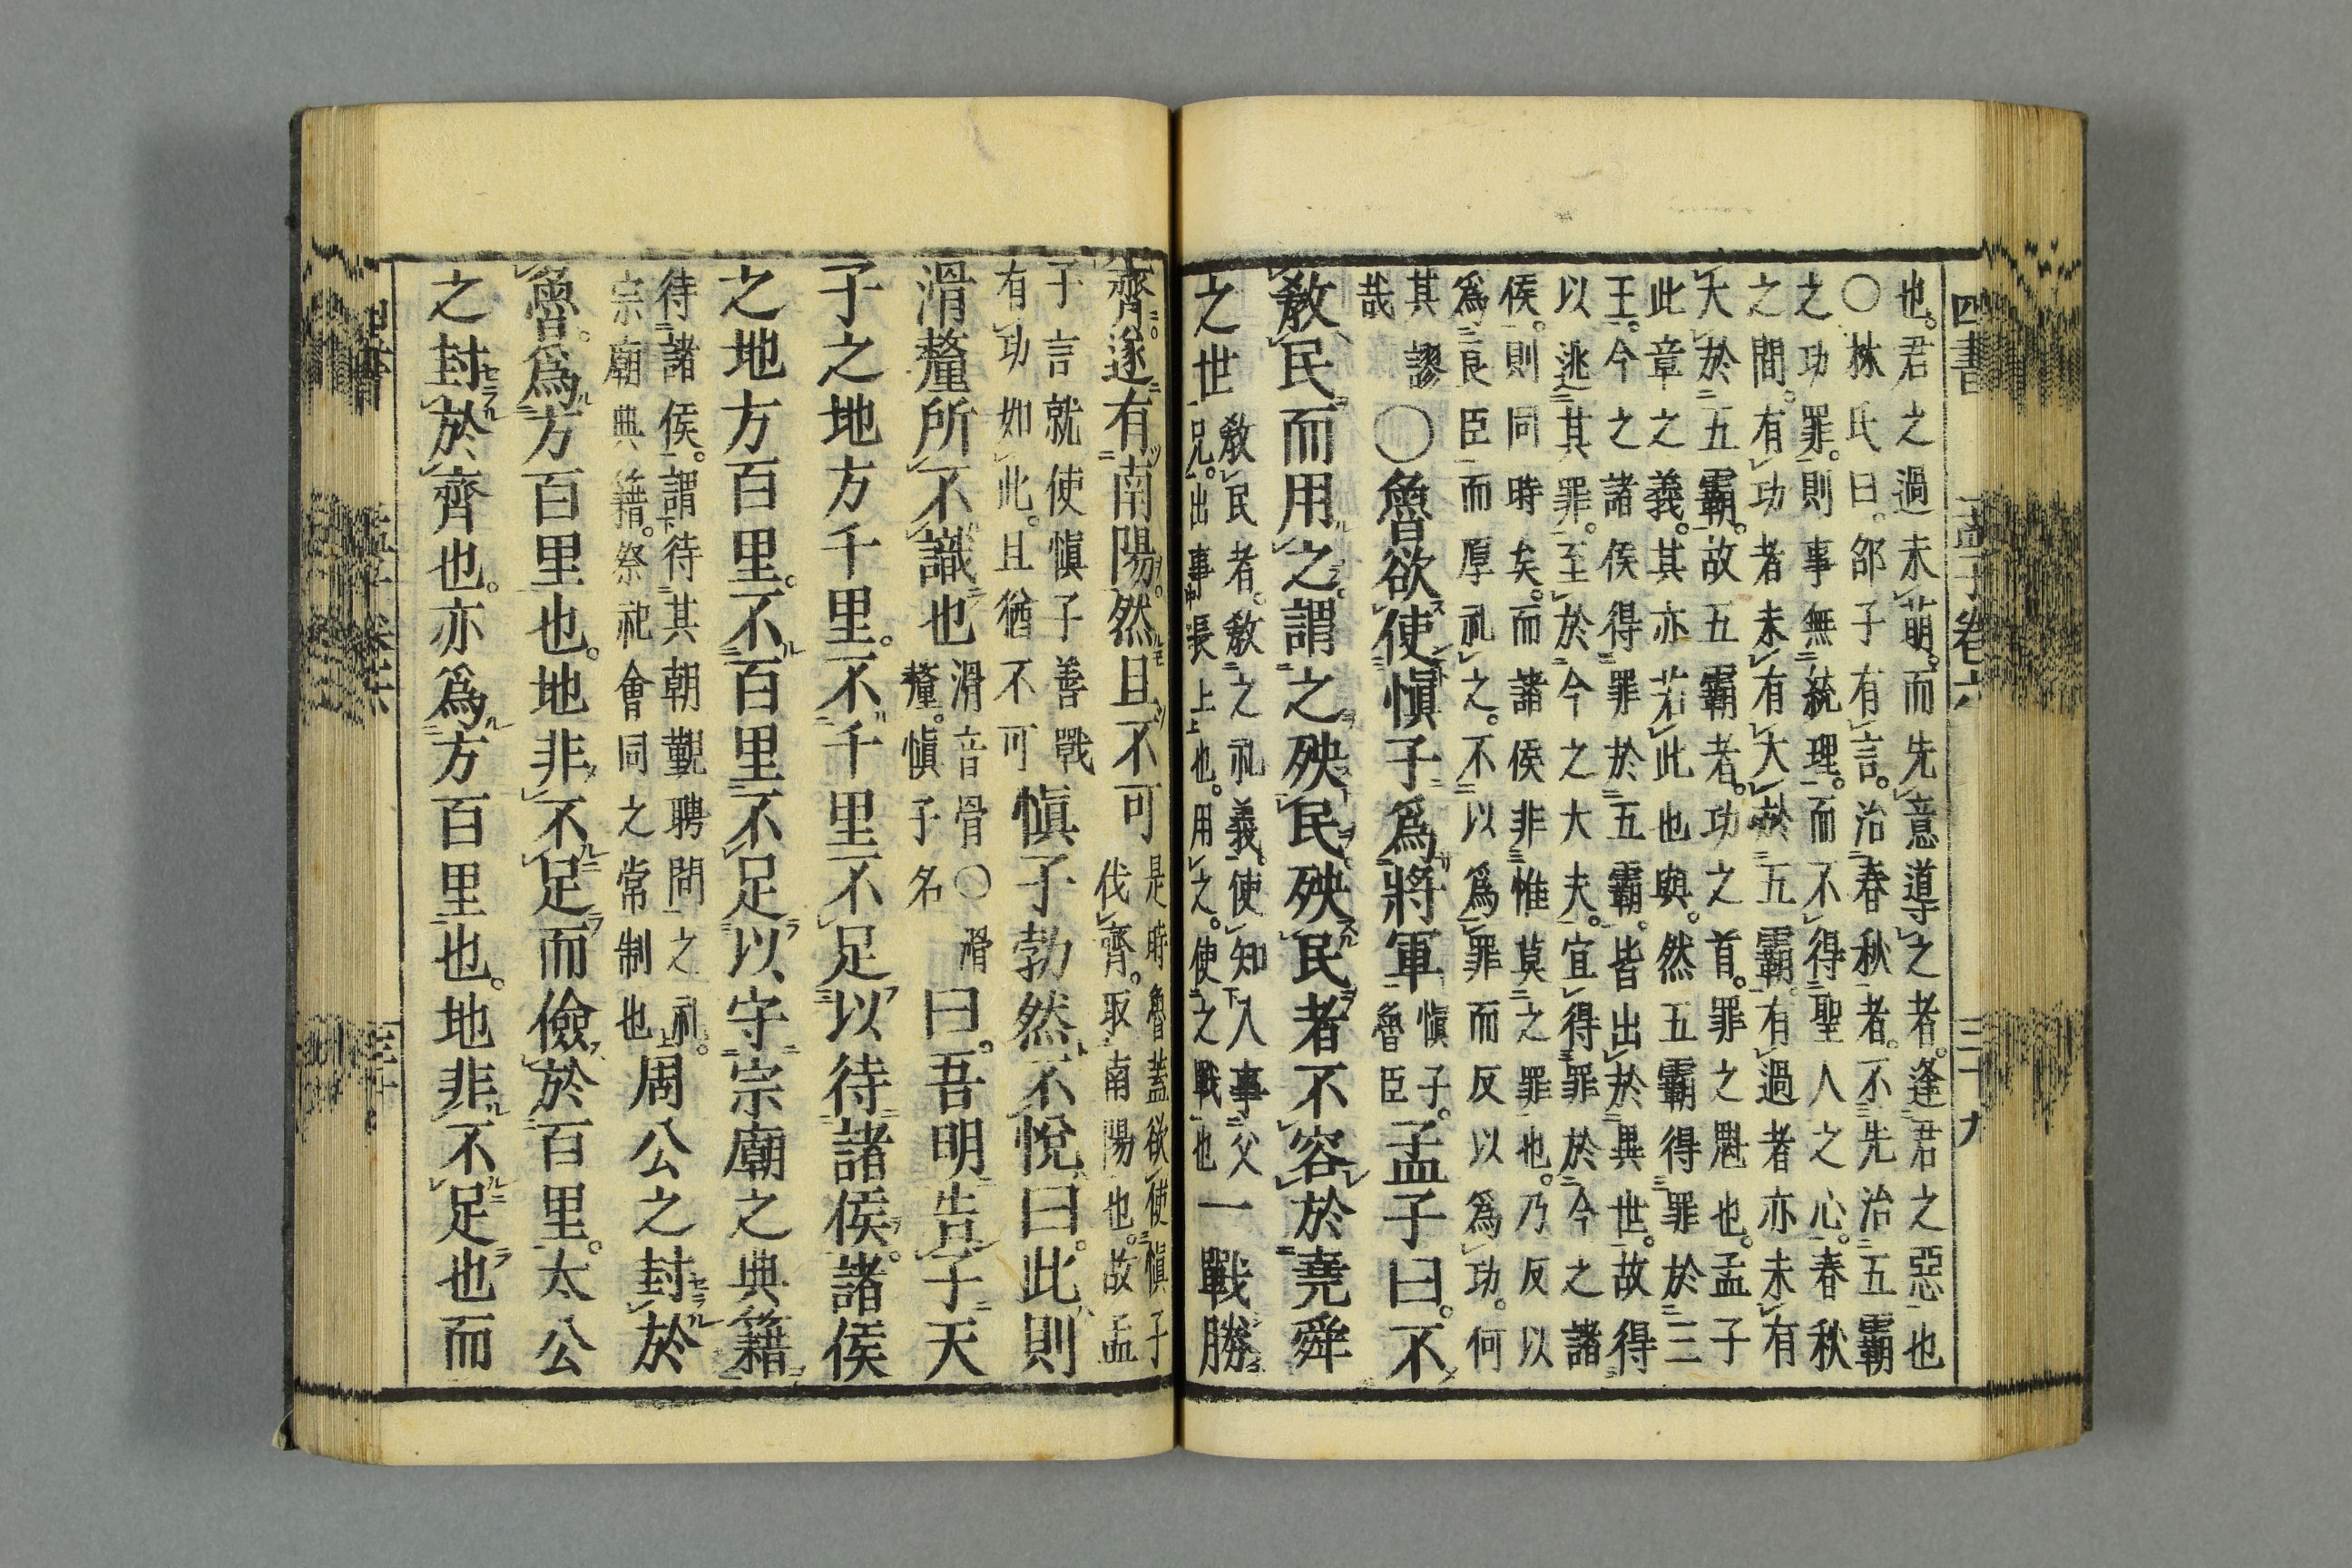 四書
孟子卷六
三十九
也。君之過未萌。而先意導之者。逢君之惡也
○林氏曰。邵子有言。治春秋者。不先治五霸
之功罪。則事無統理。而不得聖人之心。春秋
之間。有功者未有大於五霸。有過者亦未有
大於五霸。故五霸者。功之首。罪之魁也。孟子
此章之義。其亦若此也與。然五霸得罪於三
王。今之諸侯得罪於五霸。皆出於異世。故得
以逃其罪。至於今之大夫。宜得罪於今之諸
侯。則同時矣。而諸侯非惟莫之罪也。乃反以
爲良臣而厚礼之。不以爲罪而反以爲功。何
其謬
哉
○魯欲使愼子爲將軍
愼子。
魯臣
孟子曰。不
教民而用之。謂之殃民。殃民者不容於堯舜
之世
教民者。教之礼義。使知人事父
兄。出事長上也。用之。使之戰也
一戰勝
齊。遂有南陽。然且不可
是時魯蓋欲使愼子
伐齊。取南陽也。故孟
子言就使愼子善戰
有功如此。且猶不可
愼子勃然不悅曰。此則
滑釐所不識也
滑音骨○滑
釐。愼子名
曰。吾明告子天
子之地方千里。不千里不足以待諸侯。諸侯
之地方百里。不百里不足以守宗廟之典籍
待諸侯。謂待其朝覲聘問之礼。
宗廟典籍。祭祀會同之常制也
周公之封於
魯。爲方百里也。地非不足而儉於百里。太公
之封於齊也。亦爲方百里也。地非不足也而